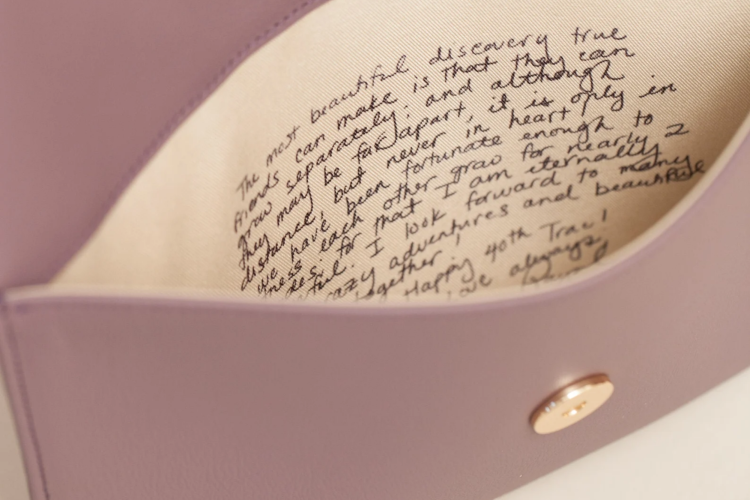 The most beautiful discovery true
friends can make is that they can
grow separately; and although
they may be far apart, it is only in
distance, but never in heart
we have been fortunate enough to
ness each other grow for nearly 2
des. for that I am eternally
ful. I look forward to many
razy adventures and beautiful
together,
Happy 40th Trac!
ove always,